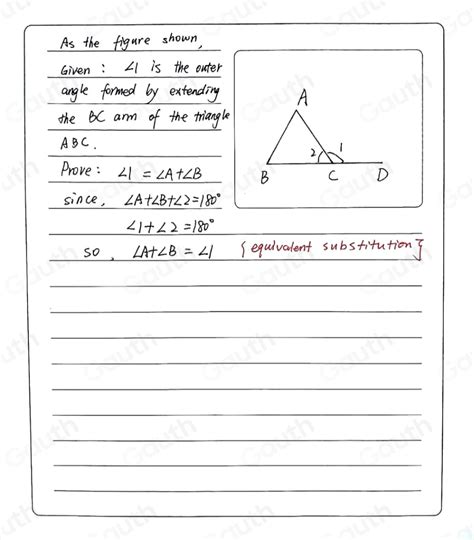 As the figure shown,
Given : ∠1 is the outer
angle formed by extending
the BC arm of the triangle
ABC.
Prove: ∠1 = ∠A+∠B
since, ∠A+∠B+∠2=180°
∠1+∠2=180°
so, ∠A+∠B = ∠1 {equivalent substitution}
A
2 1
B C D
Gauth